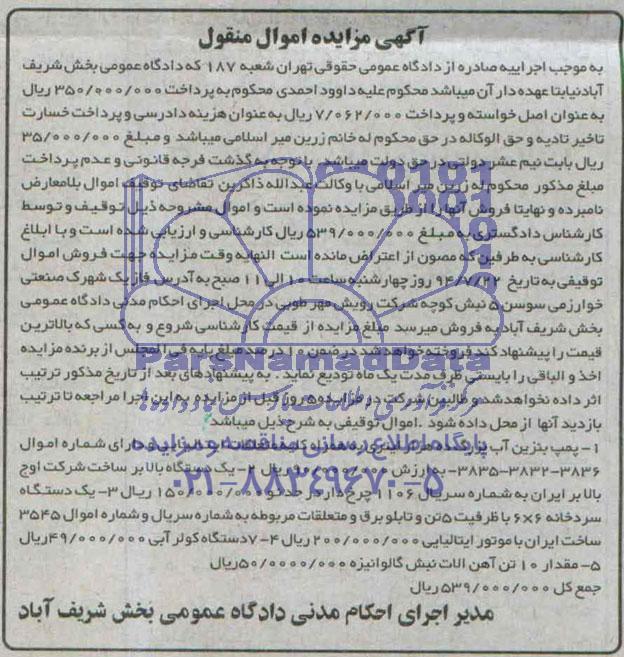 آگهی مزایده اموال منقول
به موجب اجراییه صادره از دادگاه عمومی حقوقی تهران شعبه ۱۸۷ که دادگاه عمومی بخش شریف
آباد نیابتا عهده دار آن میباشد محکوم علیه داوود احمدی محکوم به پرداخت ۳۵۰/۰۰۰/۰۰۰ ریال
به عنوان اصل خواسته و پرداخت ۷/۰۶۲/۰۰۰ ریال به عنوان هزینه دادرسی و پرداخت خسارت
تاخیر تادیه و حق الوکاله در حق محکوم له خانم زرین میر اسلامی میباشد و مبلغ ۳۵/۰۰۰/۰۰۰
ریال بابت نیم عشر دولتی در حق دولت میباشد. با توجه به گذشت فرجه قانونی و عدم پرداخت
مبلغ مذکور محکوم له زرین میر اسلامی با وکالت عبدالله ذاکرین تقاضای توقیف اموال بلامعارض
نامبرده و نهایتا فروش آنها را از طریق مزایده نموده است و اموال مشروحه ذیل توقیف و توسط
کارشناس دادگستری به مبلغ ۵۳۹/۰۰۰/۰۰۰ ریال کارشناسی و ارزیابی شده است و با ابلاغ
کارشناسی به طرفین که مصون از اعتراض مانده است النهایه وقت مزایده جهت فروش اموال
توقیفی به تاریخ ۹۴/۷/۲۲ روز چهارشنبه ساعت ۱۰ الی ۱۱ صبح به آدرس فاز یک شهرک صنعتی
خوارزمی سوسن ۵ نبش کوچه شرکت رویش مهر طوبی در محل اجرای احکام مدنی دادگاه عمومی
بخش شریف آباد به فروش میرسد مبلغ مزایده از قیمت کارشناسی شروع و به کسی که بالاترین
قیمت را پیشنهاد کند فروخته خواهد شد در ضمن ۱۰ درصد مبلغ پایه فی المجلس از برنده مزایده
اخذ و الباقی را بایستی ظرف مدت یک ماه تودیع نماید. به پیشنهادهای بعد از تاریخ مذکور ترتیب
اثر داده نخواهد شد و طالبین شرکت در مزایده ۵ روز قبل از مزایده به این اجرا مراجعه تا ترتیب
بازدید آنها از محل داده شود. اموال توقیفی به شرح ذیل میباشد
۱- پمپ بنزین آب به همراه کلیه متعلقات و دارای شماره اموال
۳۸۳۶-۳۸۳۲-۳۸۳۵ به ارزش ۹۰/۰۰۰/۰۰۰ ریال ۲- یک دستگاه بالابر ساخت شرکت اوج
بالابر ایران به شماره سریال ۱۱۰۶ چرخ دار در حد نو ۱۵۰/۰۰۰/۰۰۰ ریال ۳- یک دستگاه
سردخانه ۶×۶ با ظرفیت ۵ تن و تابلو برق و متعلقات مربوطه به شماره سریال و شماره اموال ۳۵۴۵
ساخت ایران با موتور ایتالیایی ۲۰۰/۰۰۰/۰۰۰ ریال ۴- ۷ دستگاه کولر آبی ۴۹/۰۰۰/۰۰۰ ریال
۵- مقدار ۱۰ تن آهن الات نبش گالوانیزه ۵۰/۰۰۰۰/۰۰۰ ریال
جمع کل ۵۳۹/۰۰۰/۰۰۰ ریال
مدیر اجرای احکام مدنی دادگاه عمومی بخش شریف آباد
ParsNamadData
مرکز فرآوری اطلاعات پارس نماد داده ها
پایگاه اطلاع رسانی مناقصه و مزایده
۰۲۱-۸۸۳۴۹۶۷۰-۵